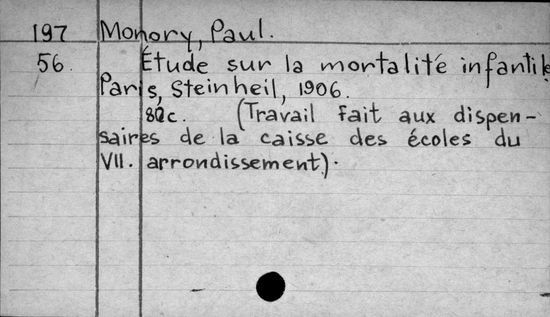 197 Monory, Paul.
56. Étude sur la mortalité infantile
Paris, Steinheil, 1906.
(Travail fait aux dispen-
saires de la caisse des écoles du
VII. arrondissement).